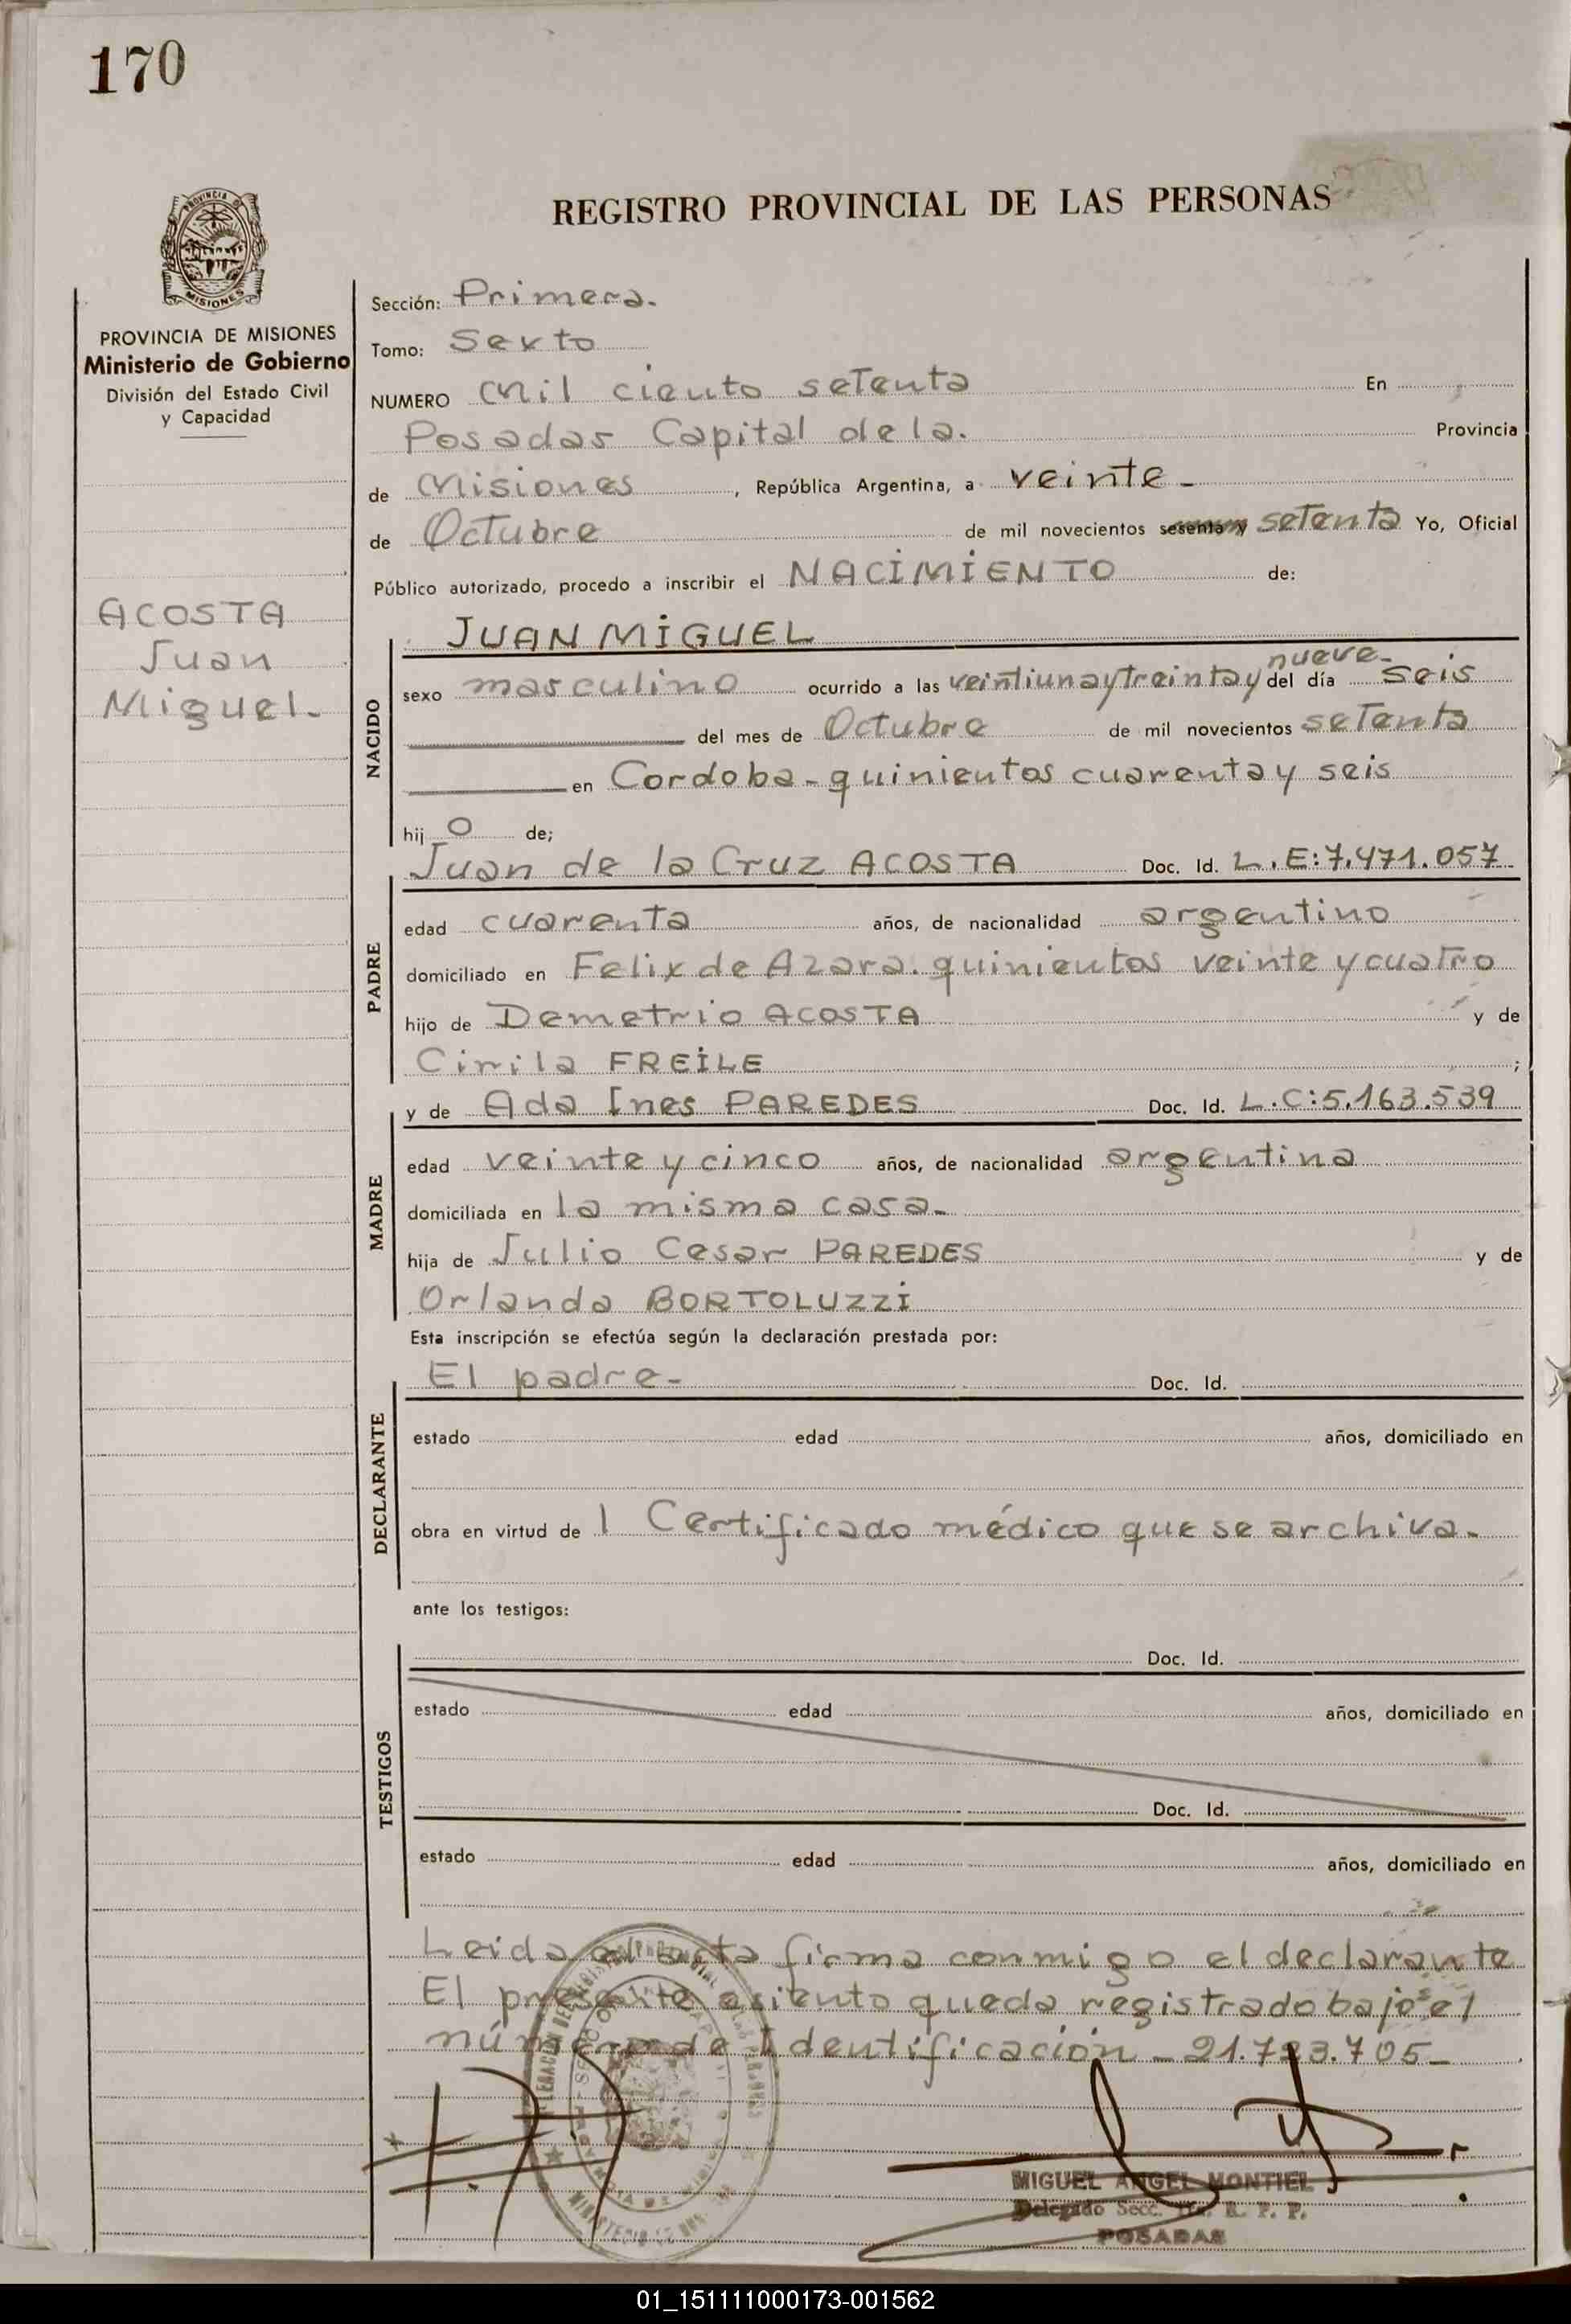 170
PROVINCIA DE
MISIONES
REGISTRO PROVINCIAL DE LAS PERSONAS
PROVINCIA DE MISIONES
Ministerio de Gobierno
División del Estado Civil
y Capacidad
ACOSTA
Juan
Miguel-
Sección: Primera.
Tomo: Sexto
NUMERO Mil ciento setenta En
Posadas Capital de la. Provincia
de Misiones, República Argentina, a veinte-
de Octubre de mil novecientos sesenta y setenta Yo, Oficial
Público autorizado, procedo a inscribir el NACIMIENTO de:
JUAN MIGUEL
NACIDO
nueve-
sexo masculino ocurrido a las veintiuna y treinta y del día seis
del mes de Octubre de mil novecientos setenta
en Cordoba-quinientos cuarenta y seis
hij o de;
Juan de la Cruz ACOSTA Doc. Id. L.E:7.471.057
PADRE
edad cuarenta años, de nacionalidad argentino
domiciliado en Felix de Azara. quinientos veinte y cuatro
hijo de Demetrio ACOSTA y de
Cirila FREILE ;
y de Ada Ines PAREDES Doc. Id. L.C:5.163.539
MADRE
edad veinte y cinco años, de nacionalidad argentina
domiciliada en la misma casa-
hija de Julio Cesar PAREDES y de
Orlanda BORTOLUZZI
Esta inscripción se efectúa según la declaración prestada por:
El padre- Doc. Id.
DECLARANTE
estado edad años, domiciliado en
obra en virtud de l Certificado médico que se archiva-
ante los testigos:
Doc. Id.
TESTIGOS
estado edad años, domiciliado en
Doc. Id.
estado edad años, domiciliado en
Leida el acta firma conmigo el declarante
El presente asiento queda registrado bajo el
número de Identificación - 21.723.705-
MIGUEL ANGEL MONTIEL
Delegado Secc. 1ra. R. P. P.
POSADAS
01_151111000173-001562